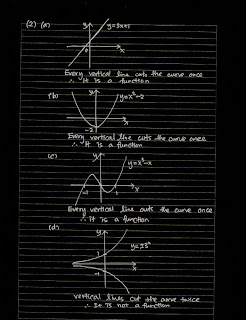 (2) (a)
y
y=3x+1
0
x
Every vertical line cuts the curve once
∴ It is a function
(b)
y
y=x²-2
x
-2
Every vertical line cuts the curve once
∴ It is a function
(c)
y
y=x³-x
-1
1
x
Every vertical line cuts the curve once
∴ It is a function
(d)
y
y=±3ˣ
x
-1
vertical lines cut the curve twice
∴ It is not a function